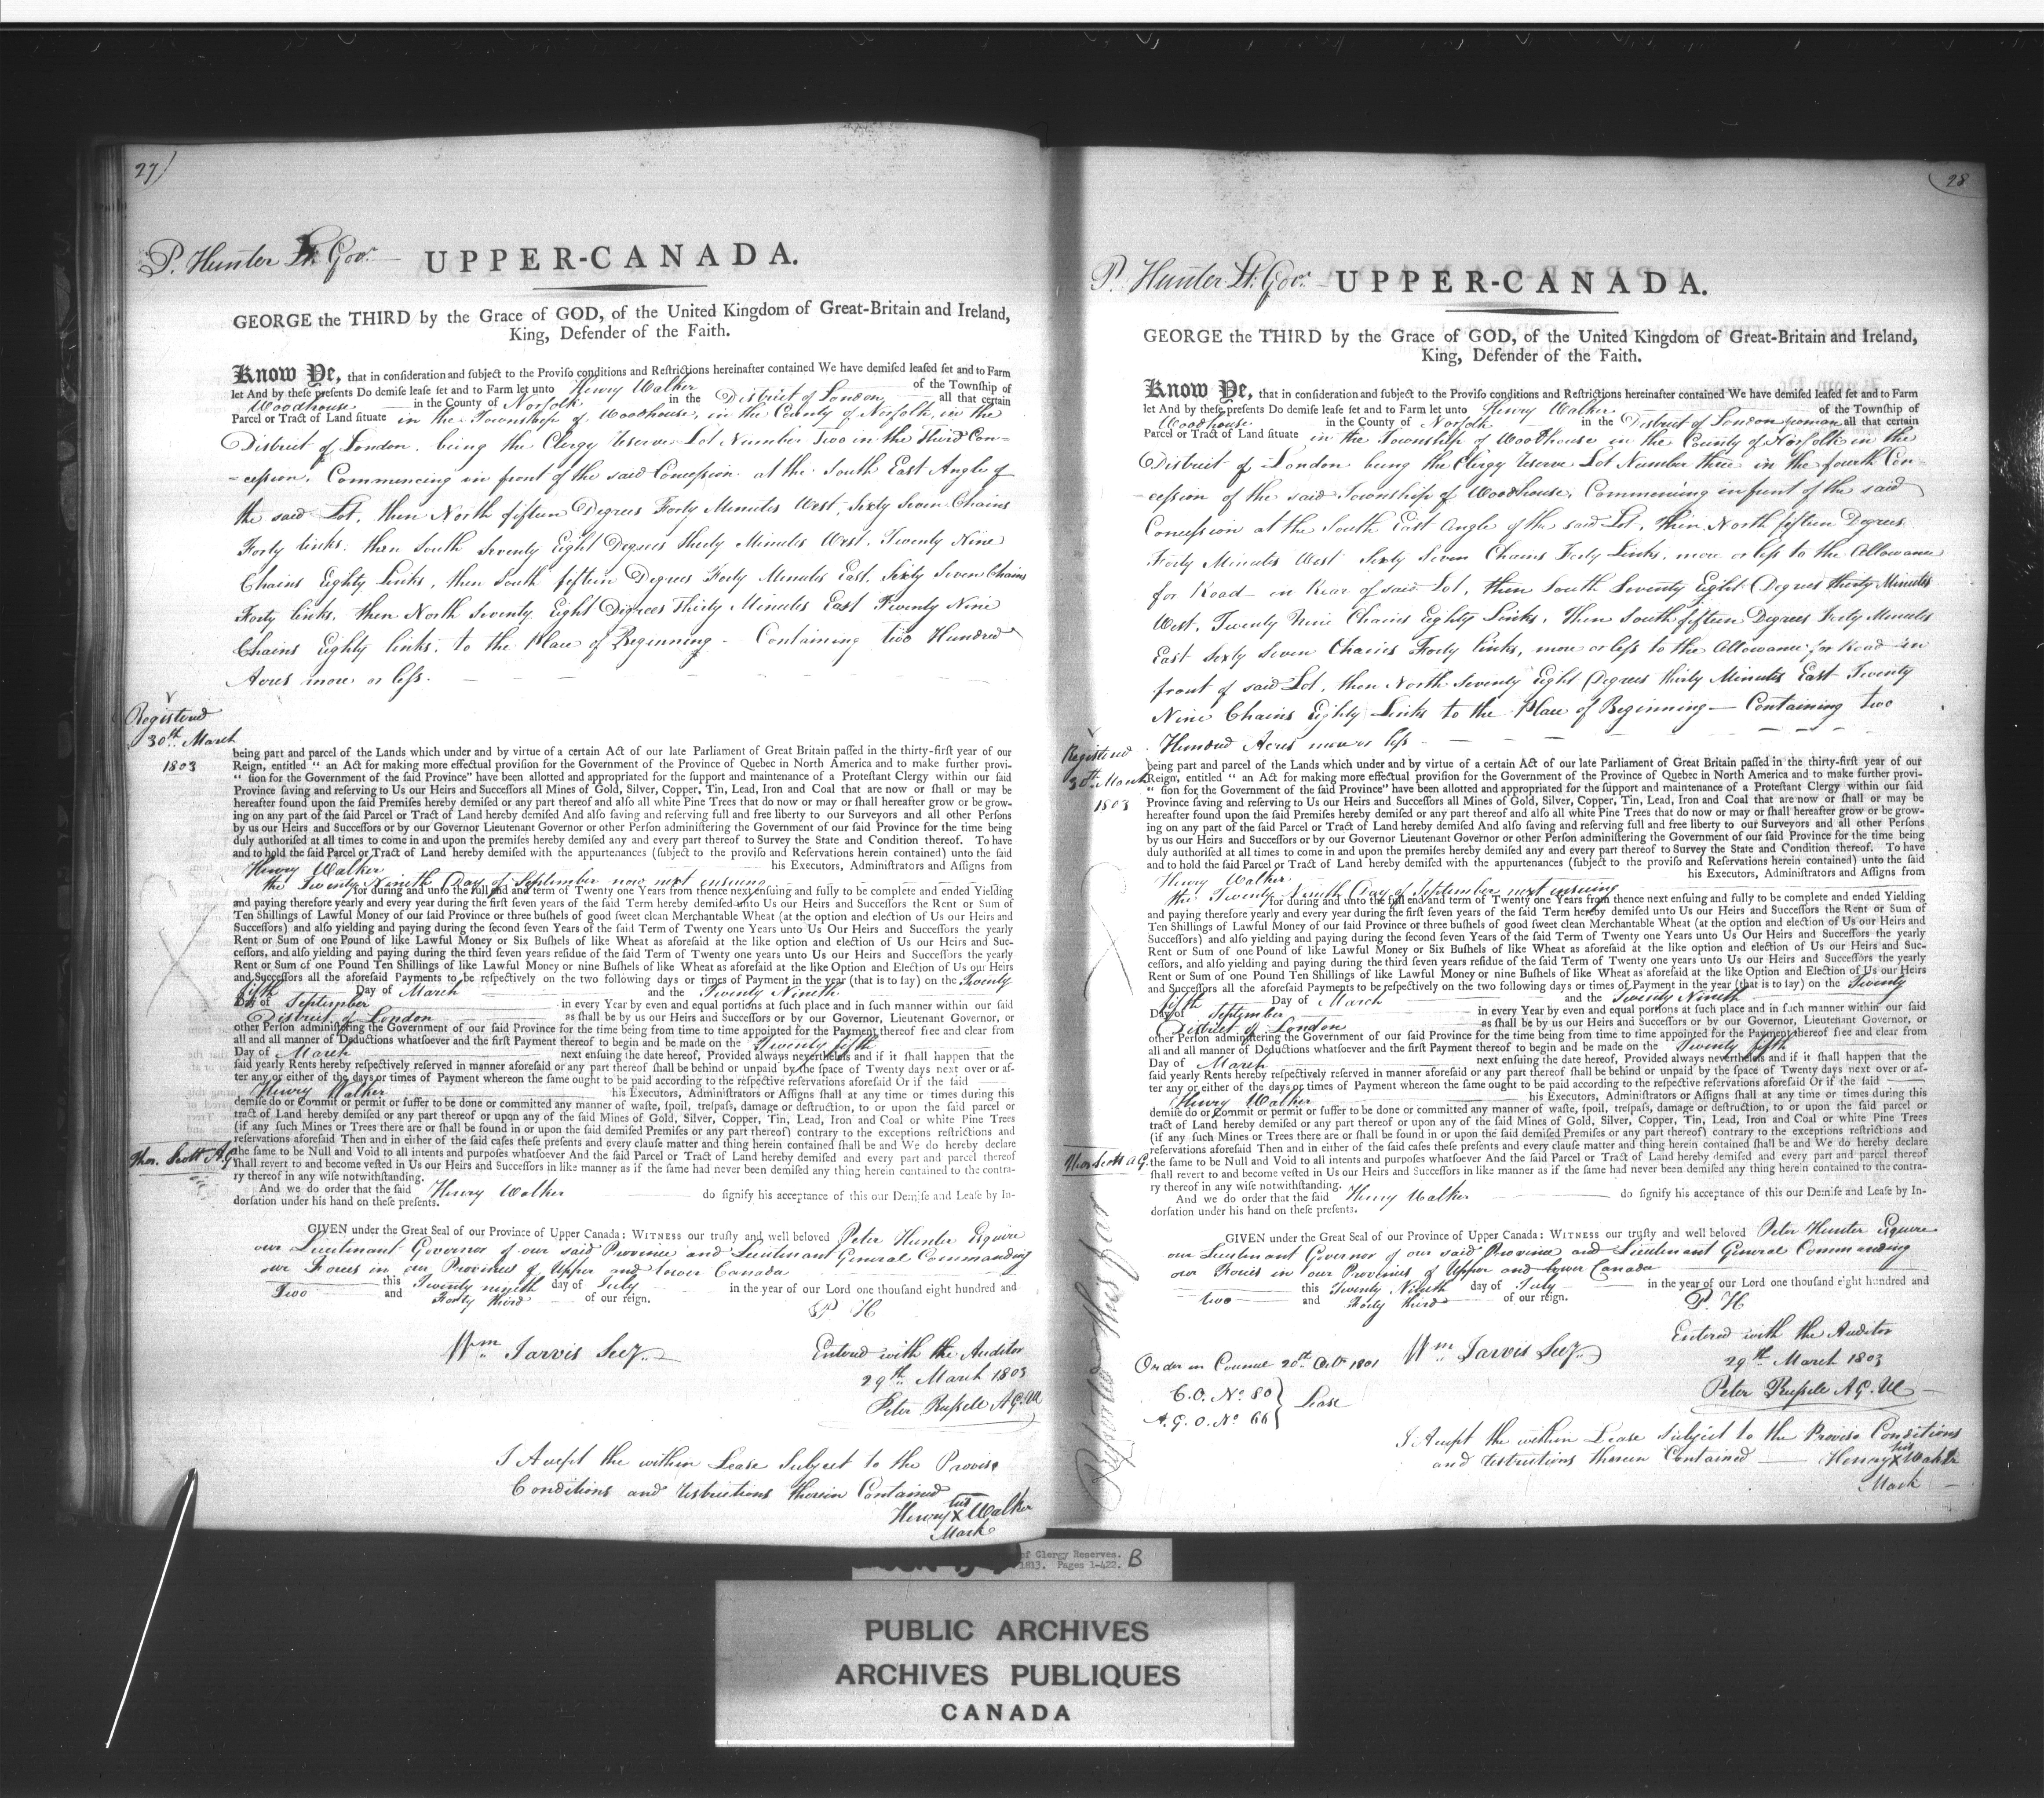 27)
P. Hunter Lt. Govr.
UPPER-CANADA.
GEORGE the THIRD by the Grace of GOD, of the United Kingdom of Great-Britain and Ireland,
King, Defender of the Faith.
Know Ye, that in consideration and subject to the Proviso conditions and Restrictions hereinafter contained We have demised leased set and to Farm
let And by these presents Do demise lease set and to Farm let unto Henry Walker of the Township of
Woodhouse in the County of Norfolk in the District of London all that certain
Parcel or Tract of Land situate in the Township of Woodhouse, in the County of Norfolk, in the
District of London. being the Clergy Reserve Lot Number Two in the Third Con=
=cession, Commencing in front of the said Concession at the South East Angle of
the said Lot, then North fifteen Degrees Forty Minutes West, Sixty Seven Chains
Forty links; then South Seventy Eight Degrees thirty Minutes West, Twenty Nine
Chains Eighty Links, then South fifteen Degrees Forty Minutes East, Sixty Seven Chains
Forty links, then North Seventy Eight Degrees Thirty Minutes East Twenty Nine
Chains Eighty links, to the Place of Beginning - Containing two Hundred
Acres more or less.
Registered
30th. March
1803
being part and parcel of the Lands which under and by virtue of a certain Act of our late Parliament of Great Britain passed in the thirty-first year of our
Reign, entitled " an Act for making more effectual provision for the Government of the Province of Quebec in North America and to make further provi-
" sion for the Government of the said Province" have been allotted and appropriated for the support and maintenance of a Protestant Clergy within our said
Province saving and reserving to Us our Heirs and Successors all Mines of Gold, Silver, Copper, Tin, Lead, Iron and Coal that are now or shall or may be
hereafter found upon the said Premises hereby demised or any part thereof and also all white Pine Trees that do now or may or shall hereafter grow or be grow-
ing on any part of the said Parcel or Tract of Land hereby demised And also saving and reserving full and free liberty to our Surveyors and all other Persons
by us our Heirs and Successors or by our Governor Lieutenant Governor or other Person administering the Government of our said Province for the time being
duly authorised at all times to come in and upon the premises hereby demised any and every part thereof to Survey the State and Condition thereof. To have
and to hold the said Parcel or Tract of Land hereby demised with the appurtenances (subject to the proviso and Reservations herein contained) unto the said
Henry Walker his Executors, Administrators and Assigns from
the Twenty Nineth Day of September now next ensuing
for during and unto the full end and term of Twenty one Years from thence next ensuing and fully to be complete and ended Yielding
and paying therefore yearly and every year during the first seven years of the said Term hereby demised unto Us our Heirs and Successors the Rent or Sum of
Ten Shillings of Lawful Money of our said Province or three bushels of good sweet clean Merchantable Wheat (at the option and election of Us our Heirs and
Successors) and also yielding and paying during the second seven Years of the said Term of Twenty one Years unto Us Our Heirs and Successors the yearly
Rent or Sum of one Pound of like Lawful Money or Six Bushels of like Wheat as aforesaid at the like option and election of Us our Heirs and Suc-
cessors, and also yielding and paying during the third seven years residue of the said Term of Twenty one years unto Us our Heirs and Successors the yearly
Rent or Sum of one Pound Ten Shillings of like Lawful Money or nine Bushels of like Wheat as aforesaid at the like Option and Election of Us our Heirs
and Successors all the aforesaid Payments to be respectively on the two following days or times of Payment in the year (that is to say) on the Twenty
fifth Day of March and the Twenty Nineth
Day of September in every Year by even and equal portions at such place and in such manner within our said
District of London as shall be by us our Heirs and Successors or by our Governor, Lieutenant Governor, or
other Person administering the Government of our said Province for the time being from time to time appointed for the Payment thereof free and clear from
all and all manner of Deductions whatsoever and the first Payment thereof to begin and be made on the Twenty fifth
Day of March next ensuing the date hereof, Provided always nevertheless and if it shall happen that the
said yearly Rents hereby respectively reserved in manner aforesaid or any part thereof shall be behind or unpaid by the space of Twenty days next over or af-
ter any or either of the days or times of Payment whereon the same ought to be paid according to the respective reservations aforesaid Or if the said
Henry Walker his Executors, Administrators or Assigns shall at any time or times during this
demise do or Commit or permit or suffer to be done or committed any manner of waste, spoil, trespass, damage or destruction, to or upon the said parcel or
tract of Land hereby demised or any part thereof or upon any of the said Mines of Gold, Silver, Copper, Tin, Lead, Iron and Coal or white Pine Trees
(if any such Mines or Trees there are or shall be found in or upon the said demised Premises or any part thereof) contrary to the exceptions restrictions and
reservations aforesaid Then and in either of the said cases these presents and every clause matter and thing herein contained shall be and We do hereby declare
Thos. Scott A.G.
the same to be Null and Void to all intents and purposes whatsoever And the said Parcel or Tract of Land hereby demised and every part and parcel thereof
shall revert to and become vested in Us our Heirs and Successors in like manner as if the same had never been demised any thing herein contained to the contra-
ry thereof in any wise notwithstanding.
And we do order that the said Henry Walker do signify his acceptance of this our Demise and Lease by In-
dorsation under his hand on these presents.
GIVEN under the Great Seal of our Province of Upper Canada: WITNESS our trusty and well beloved Peter Hunter Esquire
our Lieutenant Governor of our said Province and Lieutenant General Commanding
our Forces in our Provinces of Upper and lower Canada
this Twenty nineth day of July in the year of our Lord one thousand eight hundred and
Two and Forty third of our reign.
P. H
Wm. Jarvis Secy.
Entered with the Auditor
29th. March 1803
Peter Russell A.G.
I Accept the within Lease Subject to the Proviso
Conditions and restrictions therein Contained
Henry his X Walker
Mark
28
P. Hunter Lt. Govr.
UPPER-CANADA.
GEORGE the THIRD by the Grace of GOD, of the United Kingdom of Great-Britain and Ireland,
King, Defender of the Faith.
Know Ye, that in consideration and subject to the Proviso conditions and Restrictions hereinafter contained We have demised leased set and to Farm
let And by these presents Do demise lease set and to Farm let unto Henry Walker of the Township of
Woodhouse in the County of Norfolk in the District of London yeoman all that certain
Parcel or Tract of Land situate in the Township of Woodhouse in the County of Norfolk in the
District of London being the Clergy Reserve Lot Number three in the fourth Con=
=cession of the said Township of Woodhouse, Commencing in front of the said
Concession at the South East Angle of the said Lot, then North fifteen Degrees
Forty Minutes West Sixty Seven Chains Forty Links, more or less to the Allowance
for Road in Rear of said Lot, then South Seventy Eight Degrees thirty Minutes
West, Twenty Nine Chains Eighty Links, Then South fifteen Degrees Forty Minutes
East Sixty Seven Chains Forty links, more or less to the Allowance for Road in
front of said Lot, then North Seventy Eight Degrees thirty Minutes East Twenty
Nine Chains Eighty Links to the Place of Beginning - Containing two
Hundred Acres more or less
Registered
30th. March
1803
being part and parcel of the Lands which under and by virtue of a certain Act of our late Parliament of Great Britain passed in the thirty-first year of our
Reign, entitled " an Act for making more effectual provision for the Government of the Province of Quebec in North America and to make further provi-
" sion for the Government of the said Province" have been allotted and appropriated for the support and maintenance of a Protestant Clergy within our said
Province saving and reserving to Us our Heirs and Successors all Mines of Gold, Silver, Copper, Tin, Lead, Iron and Coal that are now or shall or may be
hereafter found upon the said Premises hereby demised or any part thereof and also all white Pine Trees that do now or may or shall hereafter grow or be grow-
ing on any part of the said Parcel or Tract of Land hereby demised And also saving and reserving full and free liberty to our Surveyors and all other Persons
by us our Heirs and Successors or by our Governor Lieutenant Governor or other Person administering the Government of our said Province for the time being
duly authorised at all times to come in and upon the premises hereby demised any and every part thereof to Survey the State and Condition thereof. To have
and to hold the said Parcel or Tract of Land hereby demised with the appurtenances (subject to the proviso and Reservations herein contained) unto the said
Henry Walker his Executors, Administrators and Assigns from
the Twenty Nineth Day of September next ensuing
for during and unto the full end and term of Twenty one Years from thence next ensuing and fully to be complete and ended Yielding
and paying therefore yearly and every year during the first seven years of the said Term hereby demised unto Us our Heirs and Successors the Rent or Sum of
Ten Shillings of Lawful Money of our said Province or three bushels of good sweet clean Merchantable Wheat (at the option and election of Us our Heirs and
Successors) and also yielding and paying during the second seven Years of the said Term of Twenty one Years unto Us Our Heirs and Successors the yearly
Rent or Sum of one Pound of like Lawful Money or Six Bushels of like Wheat as aforesaid at the like option and election of Us our Heirs and Suc-
cessors, and also yielding and paying during the third seven years residue of the said Term of Twenty one years unto Us our Heirs and Successors the yearly
Rent or Sum of one Pound Ten Shillings of like Lawful Money or nine Bushels of like Wheat as aforesaid at the like Option and Election of Us our Heirs
and Successors all the aforesaid Payments to be respectively on the two following days or times of Payment in the year (that is to say) on the Twenty
fifth Day of March and the Twenty Nineth
Day of September in every Year by even and equal portions at such place and in such manner within our said
District of London as shall be by us our Heirs and Successors or by our Governor, Lieutenant Governor, or
other Person administering the Government of our said Province for the time being from time to time appointed for the Payment thereof free and clear from
all and all manner of Deductions whatsoever and the first Payment thereof to begin and be made on the Twenty fifth
Day of March next ensuing the date hereof, Provided always nevertheless and if it shall happen that the
said yearly Rents hereby respectively reserved in manner aforesaid or any part thereof shall be behind or unpaid by the space of Twenty days next over or af-
ter any or either of the days or times of Payment whereon the same ought to be paid according to the respective reservations aforesaid Or if the said
Henry Walker his Executors, Administrators or Assigns shall at any time or times during this
demise do or Commit or permit or suffer to be done or committed any manner of waste, spoil, trespass, damage or destruction, to or upon the said parcel or
tract of Land hereby demised or any part thereof or upon any of the said Mines of Gold, Silver, Copper, Tin, Lead, Iron and Coal or white Pine Trees
(if any such Mines or Trees there are or shall be found in or upon the said demised Premises or any part thereof) contrary to the exceptions restrictions and
reservations aforesaid Then and in either of the said cases these presents and every clause matter and thing herein contained shall be and We do hereby declare
Thos Scott A G.
the same to be Null and Void to all intents and purposes whatsoever And the said Parcel or Tract of Land hereby demised and every part and parcel thereof
shall revert to and become vested in Us our Heirs and Successors in like manner as if the same had never been demised any thing herein contained to the contra-
ry thereof in any wise notwithstanding.
And we do order that the said Henry Walker do signify his acceptance of this our Demise and Lease by In-
dorsation under his hand on these presents.
GIVEN under the Great Seal of our Province of Upper Canada: WITNESS our trusty and well beloved Peter Hunter Esquire
our Lieutenant Governor of our said Province and Lieutenant General Commanding
our Forces in our Provinces of Upper and lower Canada
this Twenty Nineth day of July in the year of our Lord one thousand eight hundred and
two and Forty third of our reign.
P. H
Reported thus far
Order in Council 20th Octr 1801
C.O. No. 80
A.G.O. No. 66
Lease
Wm. Jarvis Secy.
Entered with the Auditor
29th. March 1803
Peter Russell A.G.
I Accept the within Lease Subject to the Proviso Conditions
and restrictions therein Contained Henry his X Walker
Mark
of Clergy Reserves.
1813. Pages 1-422. B
PUBLIC ARCHIVES
ARCHIVES PUBLIQUES
CANADA